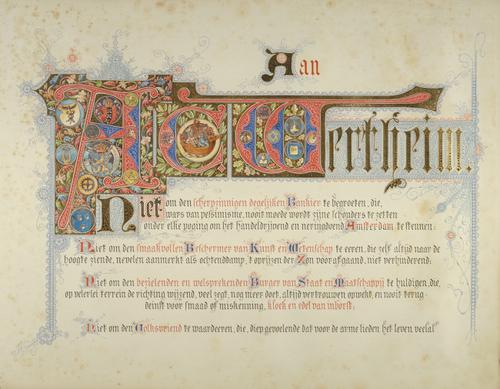 Aan
A. C. Wertheim.
Niet om den scherpzinnigen degelijken Bankier te begroeten, die,
wars van pessimisme, nooit moede wordt zijne schouders te zetten
onder elke poging om het handeldrijvend en neringdoend Amsterdam te steunen;
Niet om den smaakvollen Beschermer van Kunst en Wetenschap te eeren, die zelf altijd naar de
hoogte ziende, nevelen aanmerkt als ochtenddamp, 't oprijzen der Zon voorafgaand, niet verhinderend;
Niet om den bezielenden en welsprekenden Burger van Staat en Maatschappij te huldigen, die,
op velerlei terrein de richting wijzend, veel zegt, nog meer doet, altijd vertrouwen opwekt, en nooit terug-
deinst voor smaad of miskenning, kloek en edel van inborst;
Niet om den Volksvriend te waardeeren, die, diep gevoelende dat voor de arme lieden het leven veelal